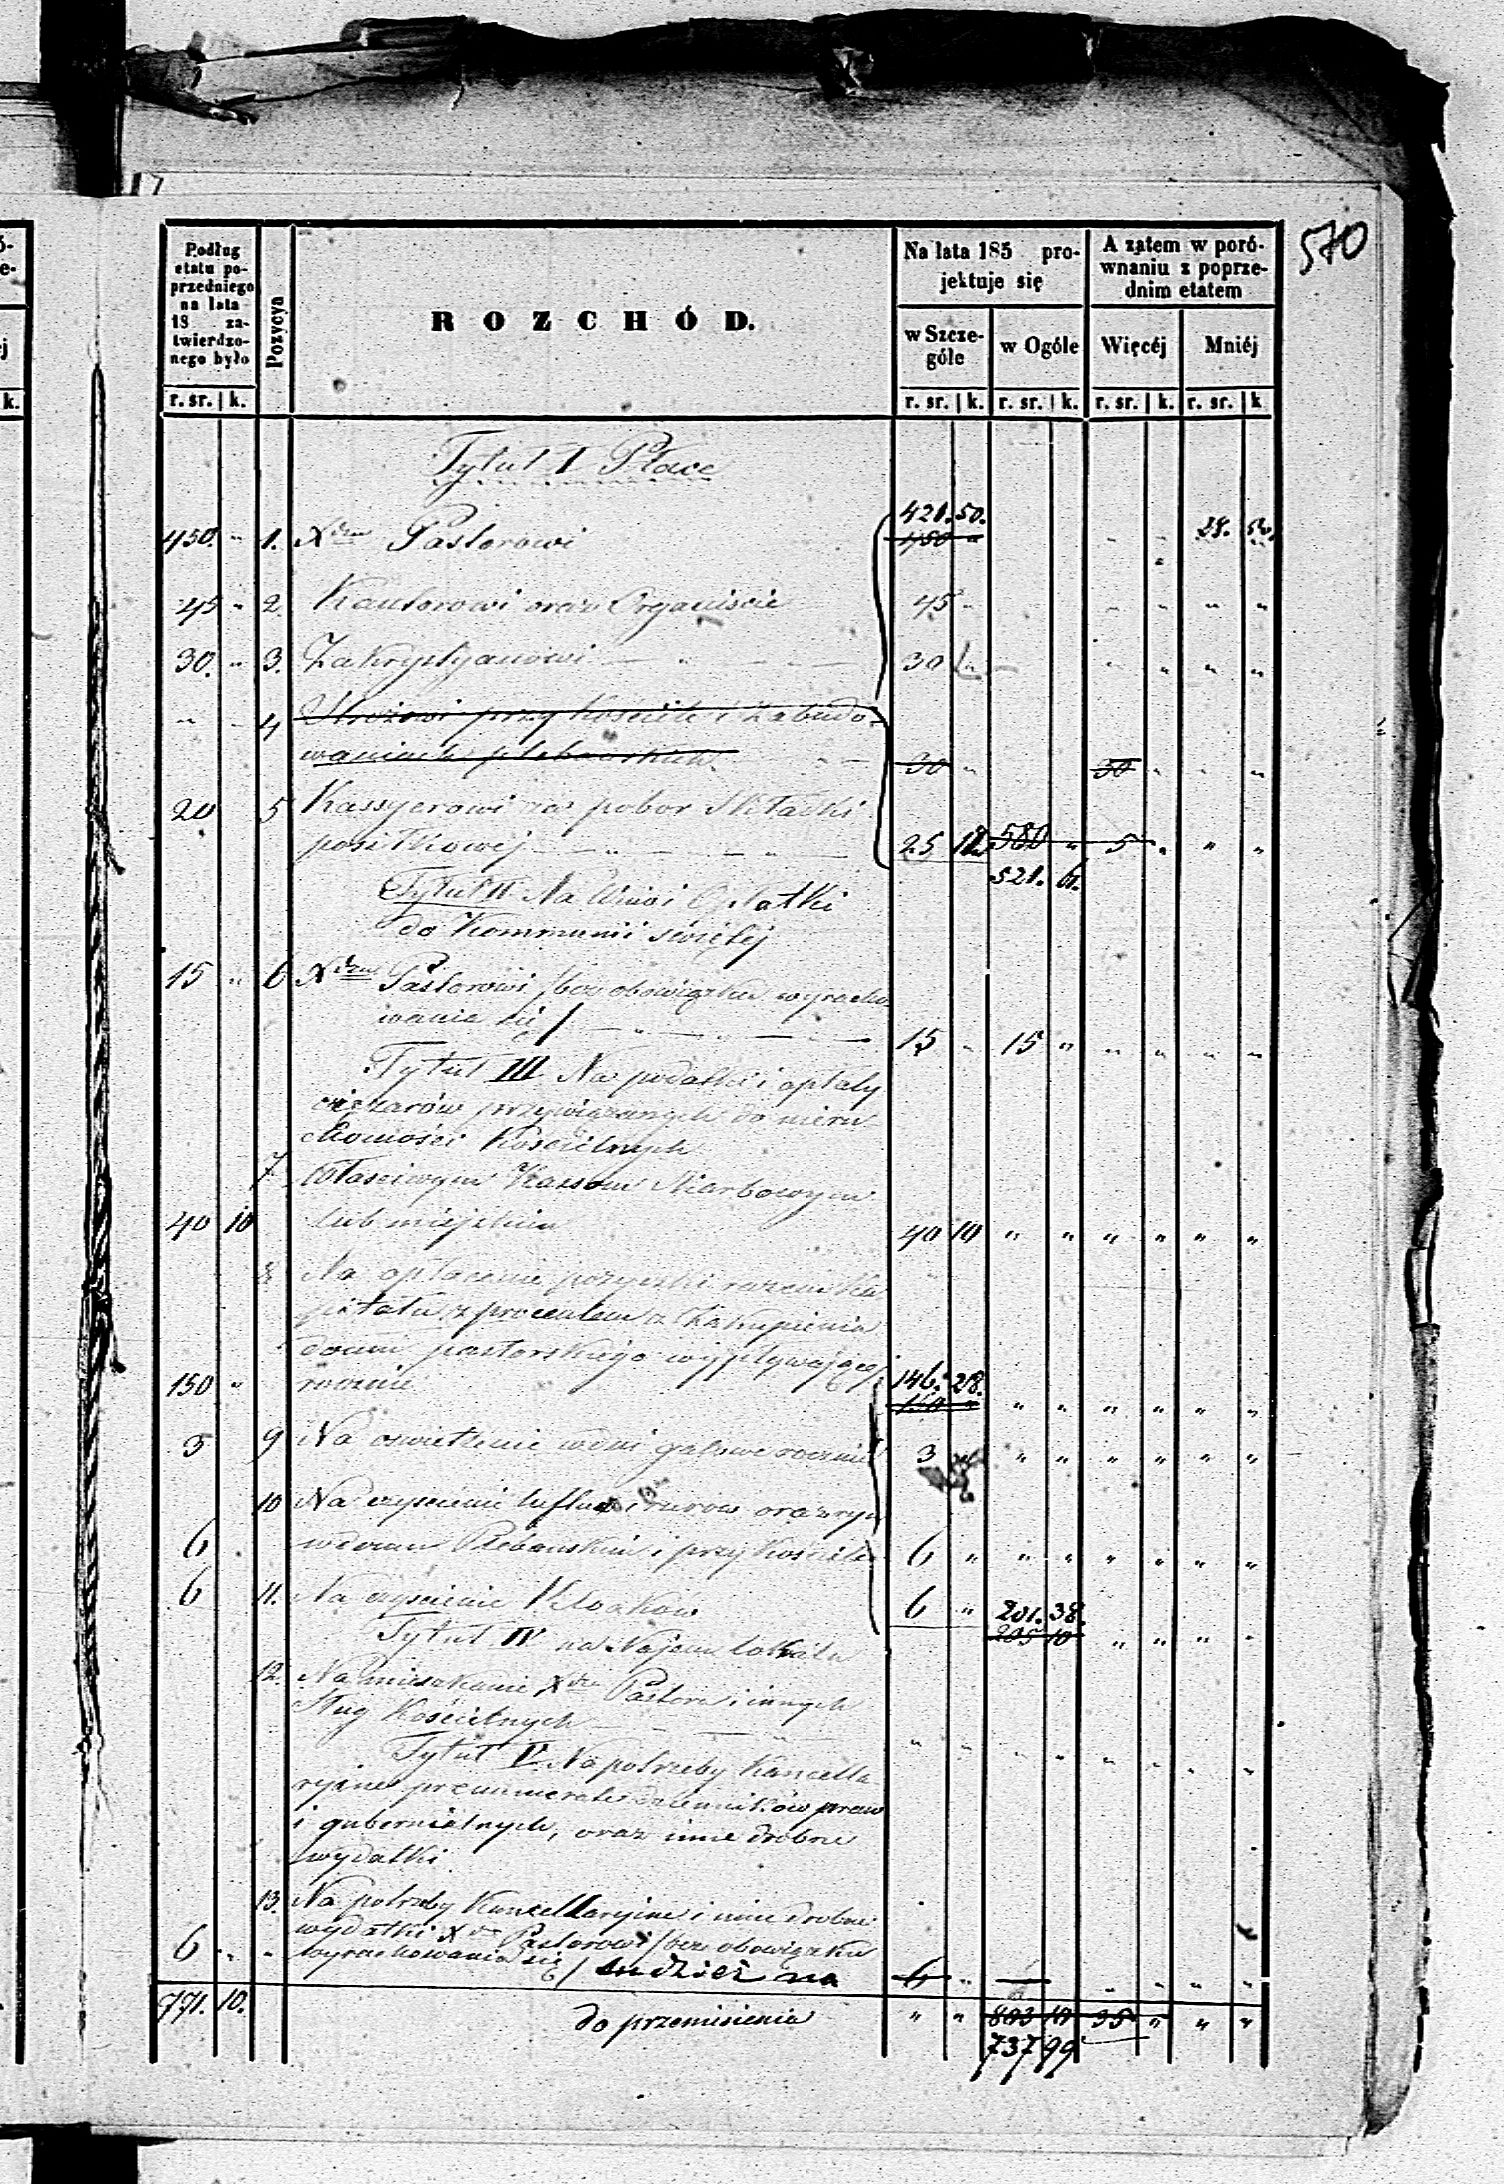 17
570
Podług etatu poprzedniego na lata 18 zatwierdzonego było
Pozycya
ROZCHÓD.
Na lata 185 projektuje się
w Szczególe
w Ogóle
A zatem w porównaniu z poprzednim etatem
Więcéj
Mniéj
r. sr. | k.
r. sr. | k. r. sr. | k. r. sr. | k. r. sr. | k
Tytuł I Płace
421. 50.
450. " 1. Xdzu Pastorowi 450 " " " 28. 50.
45 " 2. Kantorowi oraz Organiście 45 " " " " "
30. " 3. Zakrystyanowi 30 " " " " "
" " 4 Stróżowi przy Kościele i Zabudo-
waniach plebańskich 30 " 30 " " "
20 5 Kassyerowi za pobor Składki
posiłkowej 25 11 580 " 5 " " "
521. 61.
Tytuł II Na Wino i Opłatki
do Kommunii świętej
15 " 6 Xdzu Pastorowi /bez obowiązku wyracho-
wania się/ 15 " 15 " " " " "
Tytuł III Na podatki i opłaty
ciężarów przywiązanych do nieru
chomości Kościelnych
7 Właściwym Kassom Skarbowym
40 10 lub miejskim 40 10 " " " " " "
8 Na opłacenie pożyczki razem Ka
pitału z procentem z Zakupienia
domu pastorskiego wypływającej
150 " rocznie 146. 28.
150 " " " " " " "
3 9 Na oswietlenie w dni galowe rocznie 3 " " " " " "
10 Na czyszczenie luftów i rurow oraz ryn
6 w domu Plebańskim i przy Kościele 6 " " " " " " "
6 11. Na czyszczenie Kloaków 6 " 201. 38.
205 10 " " " "
Tytuł IV na Najem lokalu
12. Na mieszkanie Xdza Pastora i innych
Sług Kościelnych " " " " " " " "
Tytuł V. Na potrzeby Kancella
ryjne prenumeratę dzienników praw
i gubernialnych, oraz inne drobne
wydatki
13. Na potrzeby Kancellaryjne i inne drobne
wydatki Xdzu Pastorowi /bez obowiązku
6 " " wyrachowania się/ 6 " " " " "
771. 10. do przeniesienia " " 803 10 35 " " "
737 99